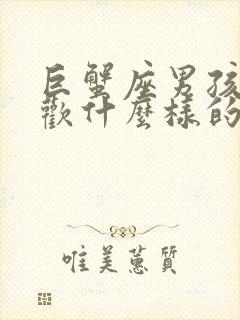 巨蟹座男孩
歡什麼樣的
唯美蕙質